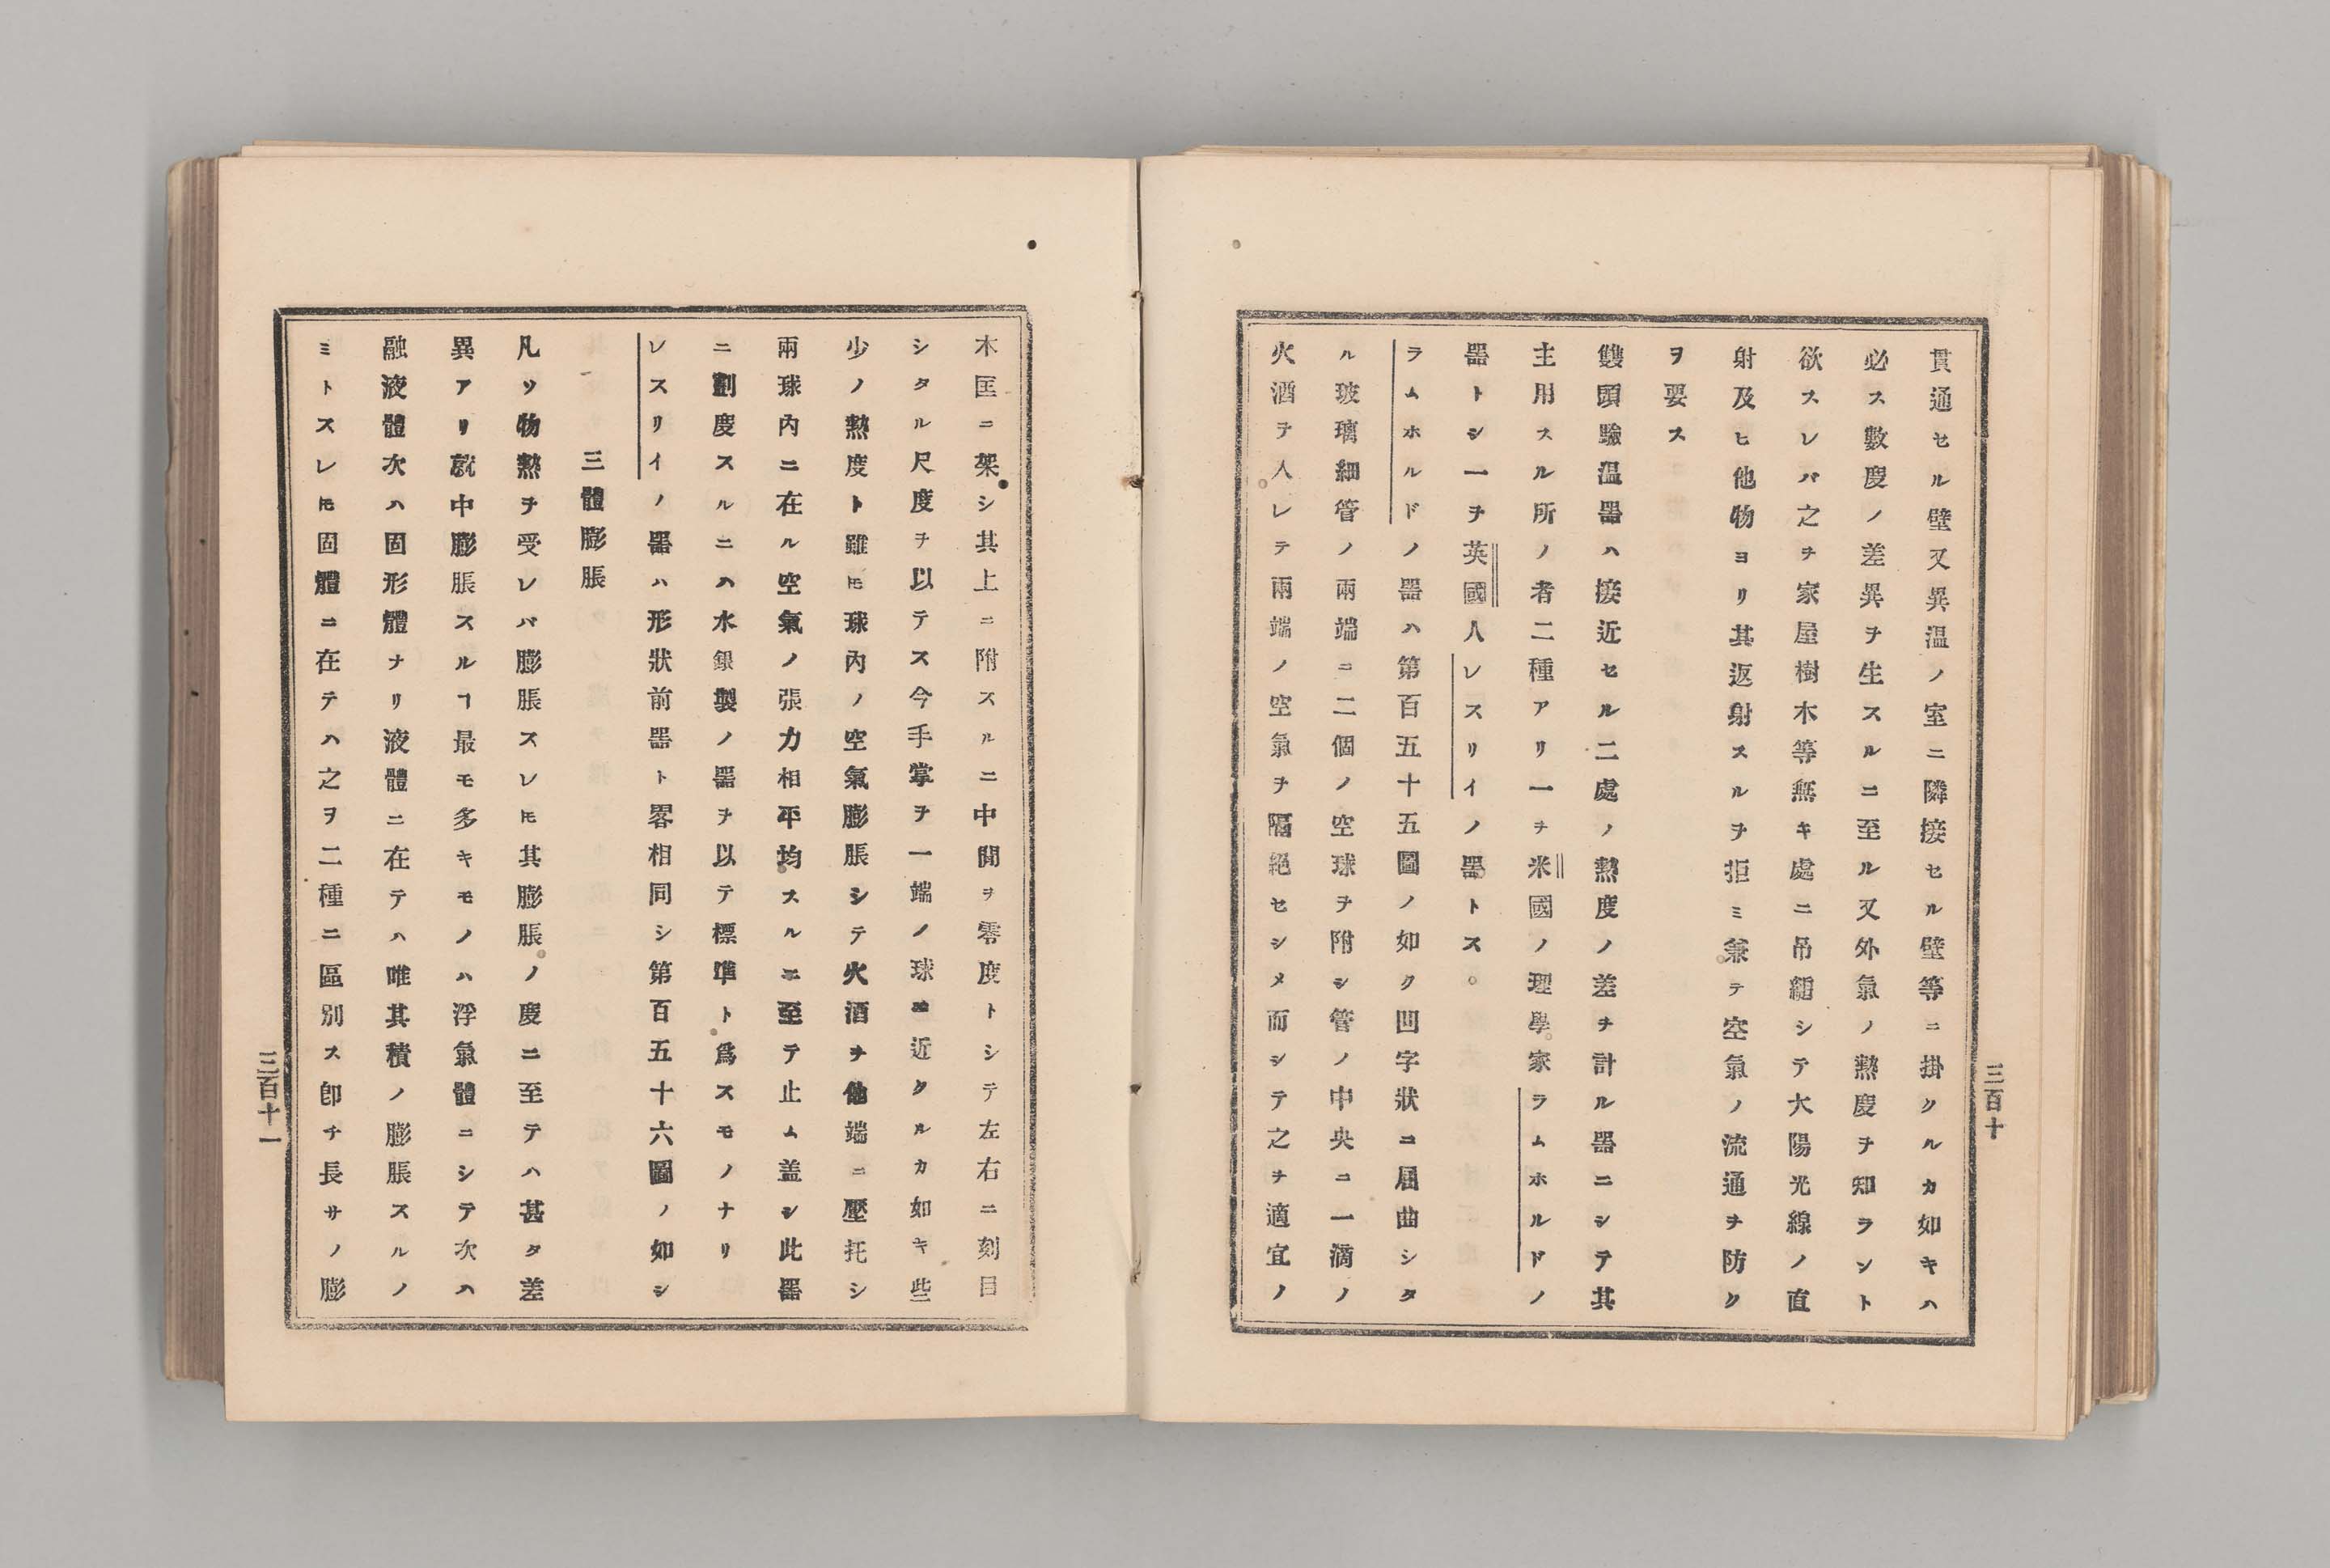 貫通セル壁又異温ノ室ニ隣接セル壁等ニ掛クルカ如キハ
必ス數度ノ差異ヲ生スルニ至ル又外氣ノ熱度ヲ知ラント
欲スレバ之ヲ家屋樹木等無キ處ニ吊繮シテ大陽光線ノ直
射及ヒ他物ヨリ其返射スルヲ拒ミ兼テ空氣ノ流通ヲ防ク
ヲ要ス
雙頭驗温器ハ接近セル二處ノ熱度ノ差ヲ計ル器ニシテ其
主用スル所ノ者二種アリ一ヲ米國ノ理學家ラムホルドノ
器トシ一ヲ英國人レスリイノ器トス。
ラムホルドノ器ハ第百五十五圖ノ如ク凹字狀ニ屈曲シタ
ル玻璃細管ノ兩端ニ二個ノ空球ヲ附シ管ノ中央ニ一滴ノ
火酒ヲ人レテ兩端ノ空氣ヲ隔絕セシメ而シテ之ヲ適宜ノ
三百十
木匡ニ架シ其上ニ附スルニ中間ヲ零度トシテ左右ニ刻目
シタル尺度ヲ以テス今手掌ヲ一端ノ球ニ近クルカ如キ些
少ノ熱度ト雖𪜈球內ノ空氣膨脹シテ火酒ヲ他端ニ壓托シ
兩球內ニ在ル空氣ノ張力相平均スルニ至テ止ム盖シ此器
ニ劃度スルニハ水銀製ノ器ヲ以テ標準ト爲スモノナリ
レスリイノ器ハ形狀前器ト畧相同シ第百五十六圖ノ如シ
三體膨脹
凡ソ物熱ヲ受レバ膨脹スレ𪜈其膨脹ノ度ニ至テハ甚タ差
異アリ就中膨脹スルヿ最モ多キモノハ浮氣體ニシテ次ハ
融液體次ハ固形體ナリ液體ニ在テハ唯其積ノ膨脹スルノ
ミトスレ𪜈固體ニ在テハ之ヲ二種ニ區別ス卽チ長サノ膨
三百十一